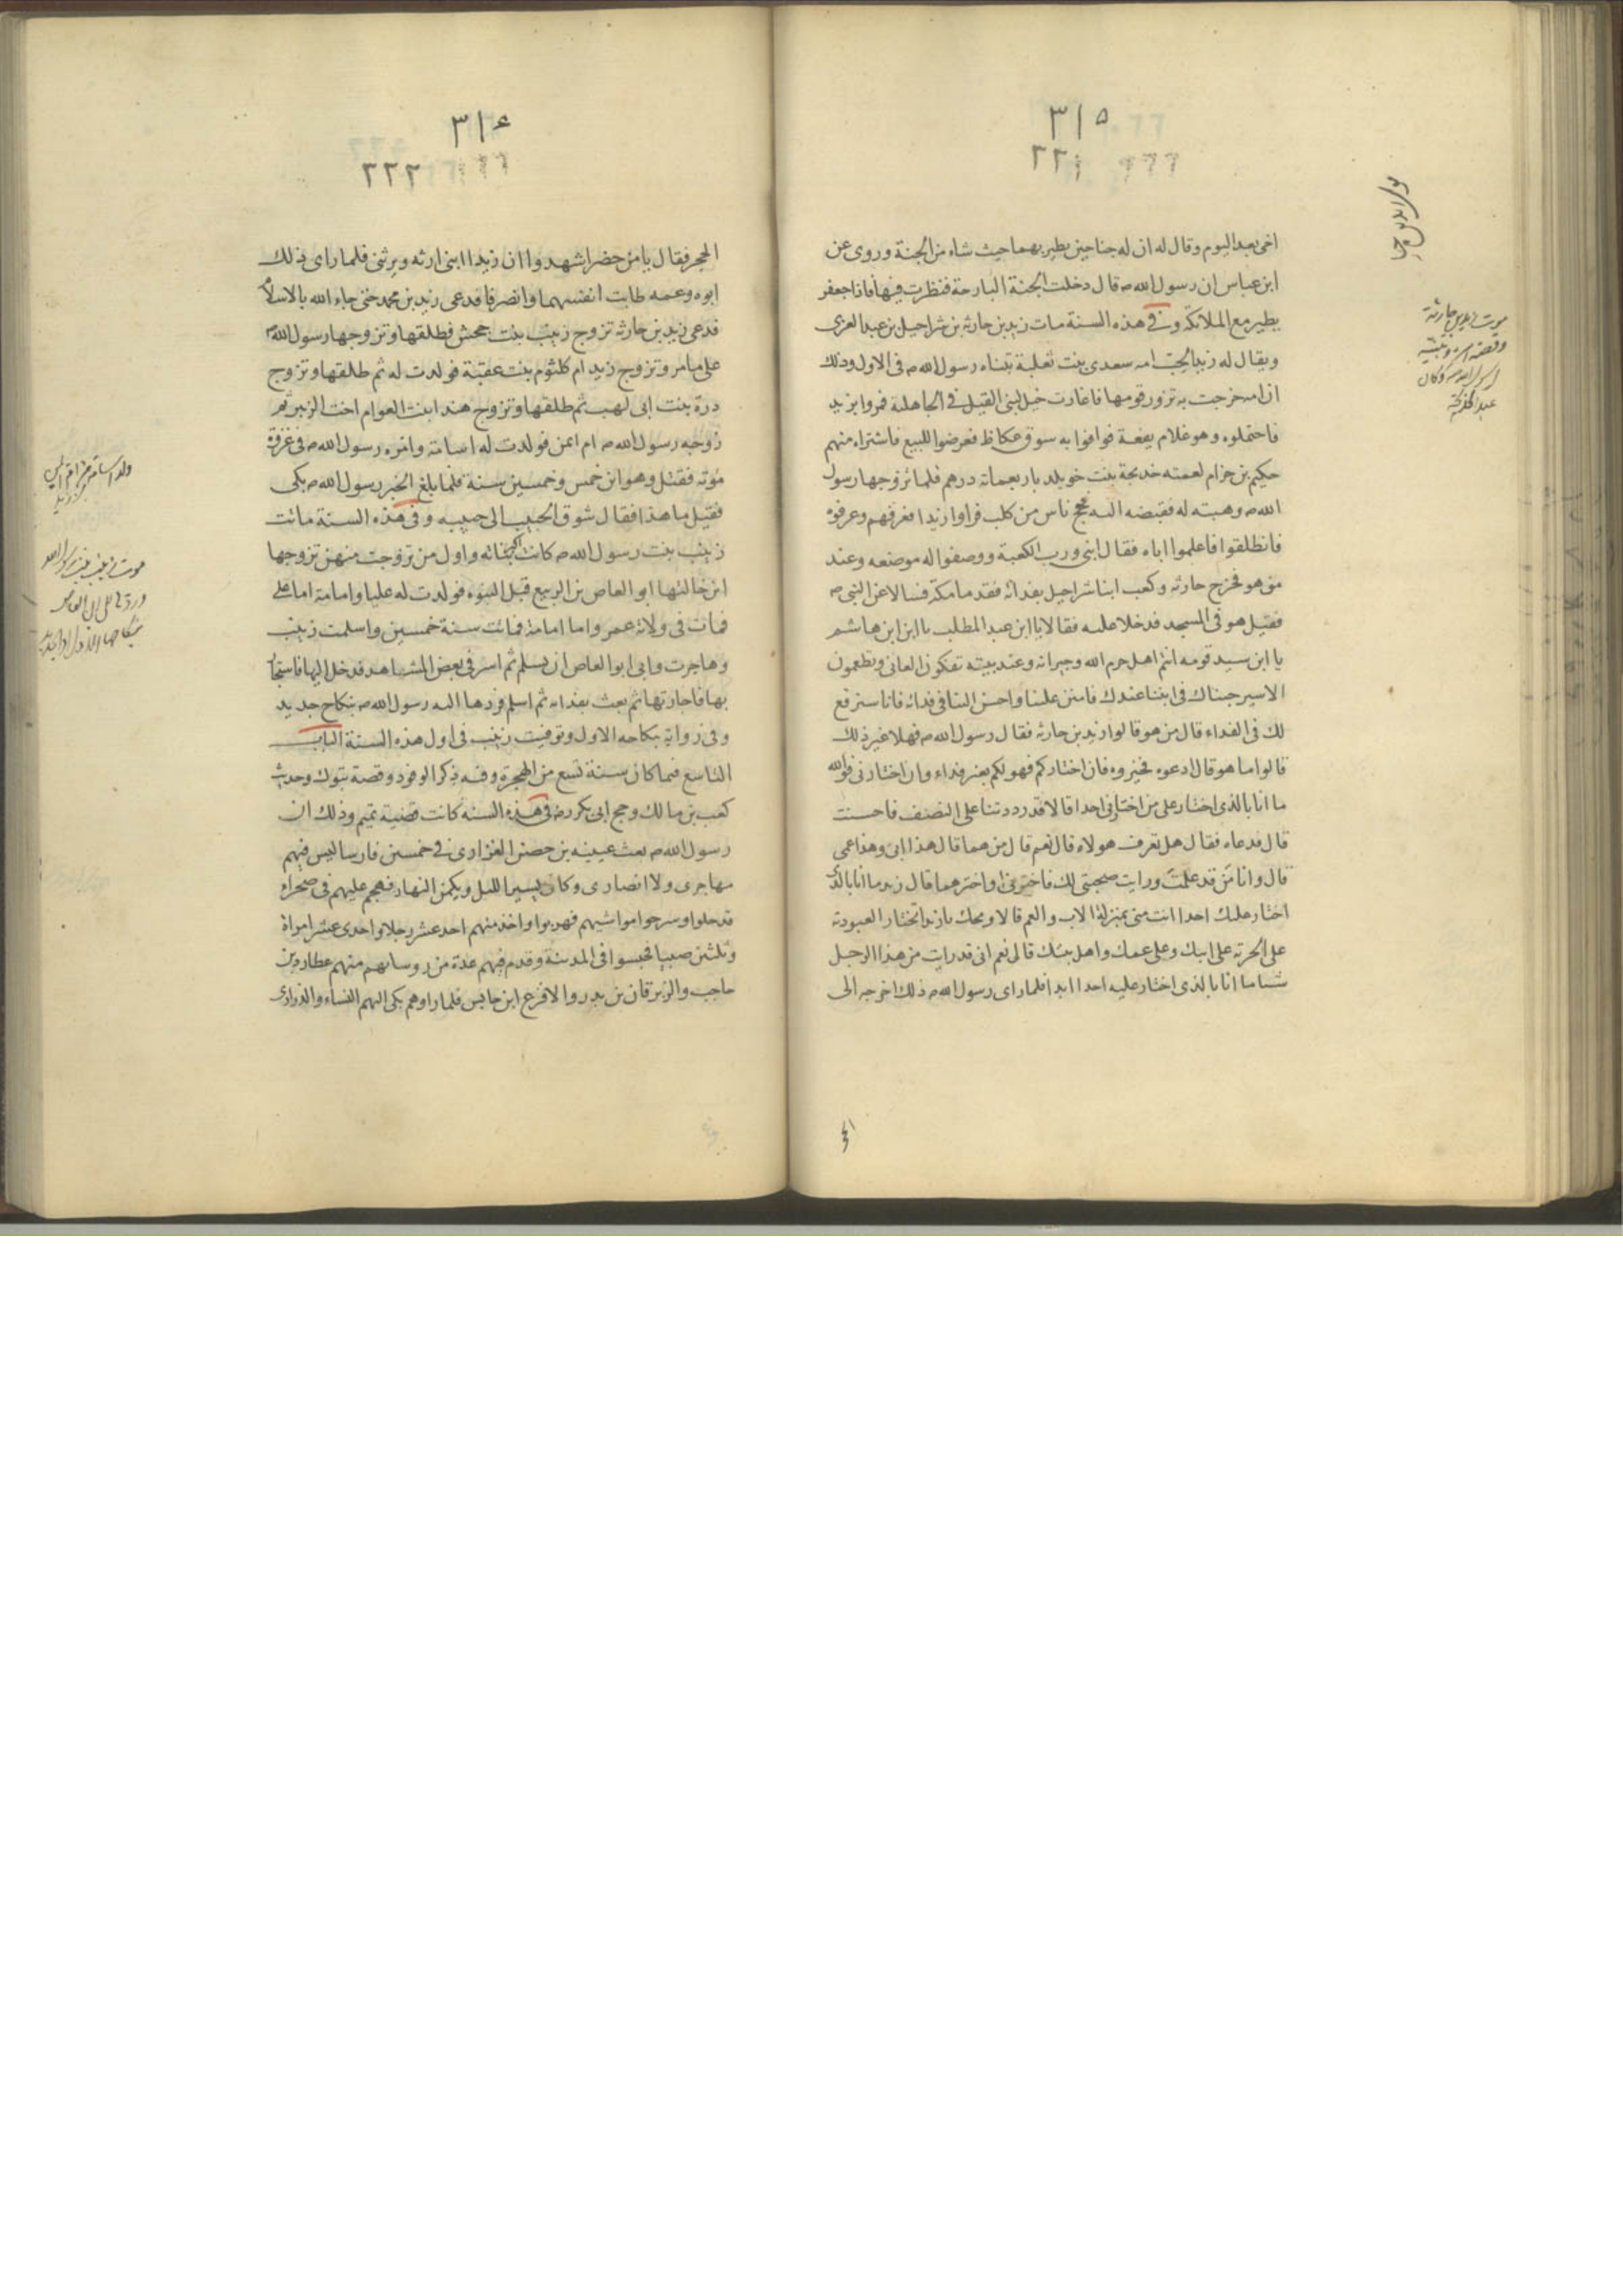 ٣١٥
٢٢١
اخى بعد اليوم وقال له ان له جناحين يطير بهما حيث شاء من الجنة وروى عن
ابن عباس ان رسول الله ص قال دخلت الجنة البارحة فنظرت فيها فاذا جعفر
يطير مع الملائكة وفى هذه السنة مات زيد بن حارثه بن شراحيل بن عبد العزى
ويقال له زيد الحب امه سعدى بنت ثعلبة تبناه رسول الله ص فى الاول وذلك
ان امه خرجت به تزور قومها فاغارت خيل لبنى القيل فى الجاهلية فمروا بزيد
فاحتملوه وهو غلام يفعة فوافوا به سوق عكاظ فعرضوا للبيع فاشتراه منهم
حكيم بن حزام لعمته خديجة بنت خويلد باربعمائة درهم فلما تزوجها رسول
الله ص وهبته له فقبضه اليه فحج ناس من كلب فراوا زيدا فعرفهم وعرفوه
فانطلقوا فاعلموا اباه فقال ابنى ورب الكعبة ووصفوا له موضعه وعند
من هو فخرج حارثه وكعب ابنا شراحيل بفدائه فقدما مكة فسالا عن النبى ص
فقيل هو فى المسجد فدخلا عليه فقالا يا ابن عبد المطلب يا ابن ابن هاشم
يا ابن سيد قومه انتم اهل حرم الله وجيرانه وعند بيته تفكون العانى وتطعمون
الاسير جيناك فى ابننا عندك فامنن علينا واحسن الينا فى فدائه فانا سنرفع
لك فى الفداء قال من هو قالوا زيد بن حارثه فقال رسول الله ص فهلا غير ذلك
قالوا ما هو قال ادعوه فخيروه فان اختاركم فهو لكم بغير فداء وان اختارنى فوالله
ما انا بالذى اختار على من اختارنى احدا قالا قد رددتنا على النصف فاحسنت
قال فدعاه فقال هل تعرف هولاء قال نعم قال من هما قال هذا ابى وهذا عمى
قال وانا من قد علمت ورايت صحبتى لك فاخترنى او اخترهما قال زيد ما انا بالذى
اختار عليك احدا انت منى بمنزلة الاب والعم قالا ويحك يا زيد اتختار العبودية
على الحرية على ابيك وعلى عمك واهل بيتك قال نعم انى قد رايت من هذا الرجل
شيئا ما انا بالذى اختار عليه احدا ابدا فلما راى رسول الله ص ذلك اخرجه الى
موت زيد بن حارثة
٣١٤
٢٢٢
الحجر فقال يا من حضر اشهدوا ان زيدا ابنى ارثه ويرثنى فلما راى ذلك
ابوه وعمه طابت انفسهما وانصرفا فدعى زيد بن محمد حتى جاء الله بالاسلام
فدعى زيد بن حارثه تزوج زينب بنت جحش فطلقها وتزوجها رسول الله ص
على ما مر وتزوج زيد ام كلثوم بنت عقبة فولدت له ثم طلقها وتزوج
درة بنت ابى لهب ثم طلقها وتزوج هند ابنت العوام اخت الزبير ثم
زوجه رسول الله ص ام ايمن فولدت له اسامة وامره رسول الله ص فى غزوة
موته فقتل وهو ابن خمس وخمسين سنة فلما بلغ الخبر رسول الله ص بكى
فقيل ما هذا فقال شوق الحبيب الى حبيبه وفى هذه السنة ماتت
زينب بنت رسول الله ص كانت اكبر بناته واول من تزوجت منهن تزوجها
ابن خالتها ابو العاص بن الربيع قبل النبوه فولدت له عليا وامامة اما على
فمات فى ولاية عمر واما امامة فماتت سنة خمسين واسلمت زينب
وهاجرت وابى ابو العاص ان يسلم ثم اسر فى بعض المشاهد فدخل اليها فاستجار
بها فاجارتها ثم بعث بفدائه ثم اسلم فردها اليه رسول الله ص بنكاح جديد
وفى رواية بنكاحه الاول وتوفيت زينب فى اول هذه السنة الباب
التاسع فيما كان سنة تسع من الهجرة وفيه ذكر الوفود وقصة تبوك وحديث
كعب بن مالك وحج ابى بكر رض فى هذه السنه كانت قضية تميم وذلك ان
رسول الله ص بعث عيينه بن حصن الفزارى فى خمسين فارسا ليس فيهم
مهاجرى ولا انصارى وكان يسير الليل ويكمن النهار فهجم عليهم فى صحراء
قد حلوا وسرحوا مواشيهم فهربوا واخذ منهم احد عشر رجلا واحدى عشر امراة
وثلثين صبيا فحبسوا فى المدينة وقدم فيهم عدة من روسائهم منهم عطارد بن
حاجب والزبرقان بن بدر والاقرع ابن حابس فلما راوهم بكى اليهم النساء والذرارى